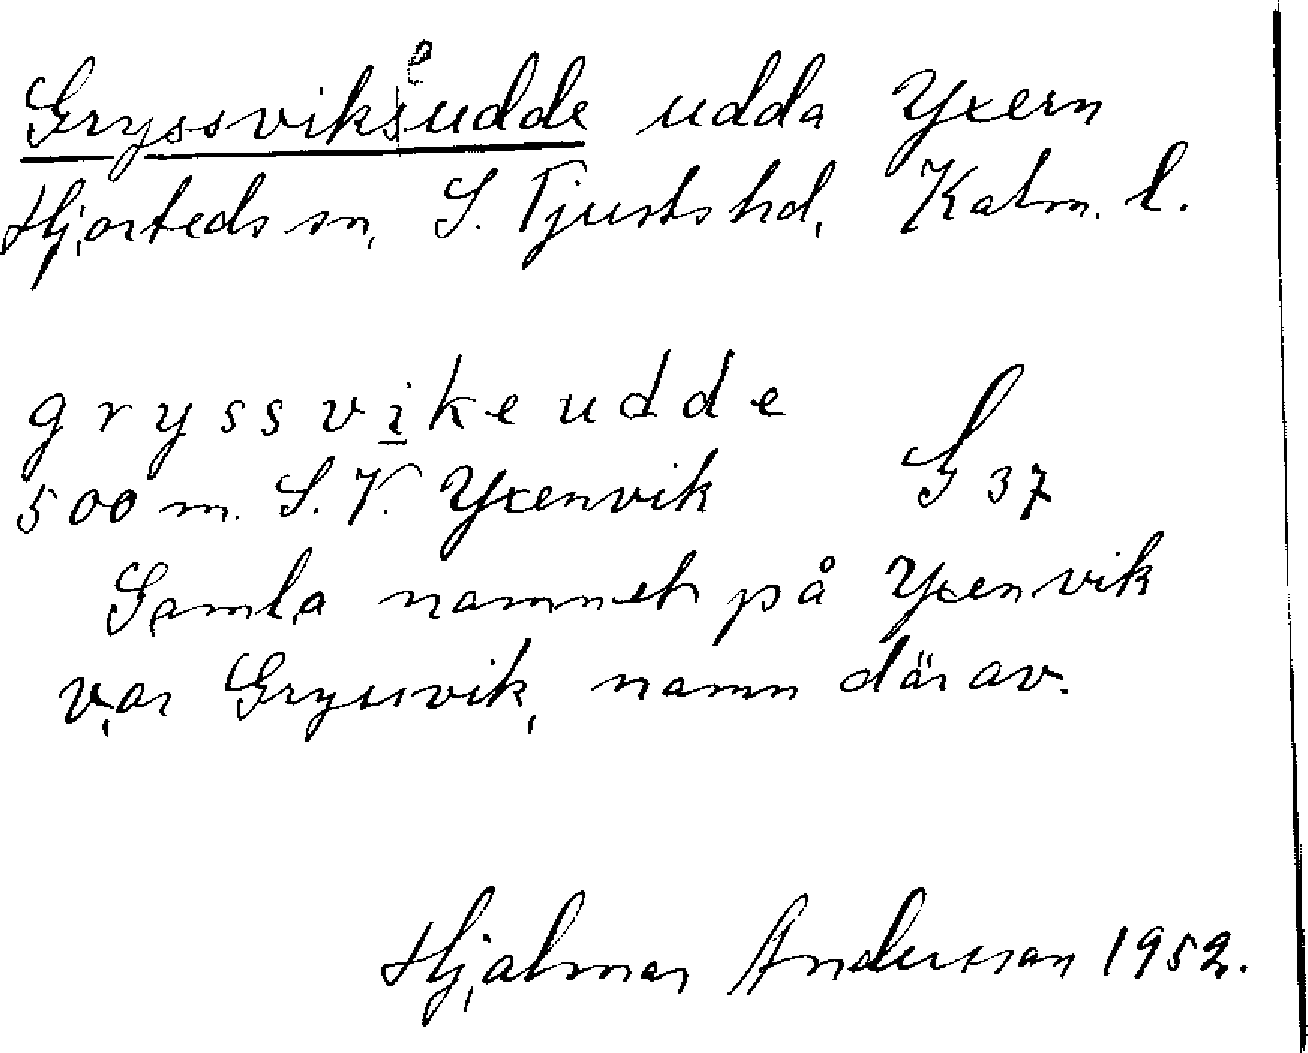 Gryssvikseudde udda Yxern
Hjorteds sn, S. Tjusts hd, Kalm. l.
gryssvikeudde
500 m. S.V. Yxenvik G 37
Gamla namnet på Yxenvik
var Gryssvik, namn därav.
Hjalmar Andersson 1952.